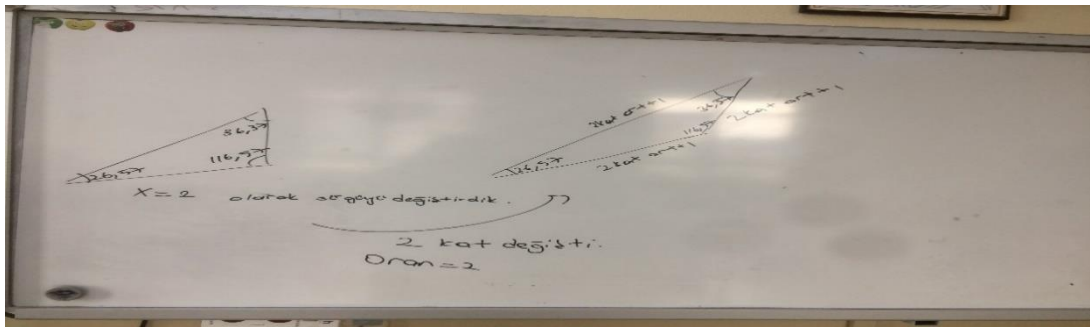 36,57
116,57
26,57
2kat arttı
36,57
116,57
2kat arttı
26,57
2kat arttı
X=2 olarak sürgüyü değiştirdik.
2 kat değişti.
Oran=2